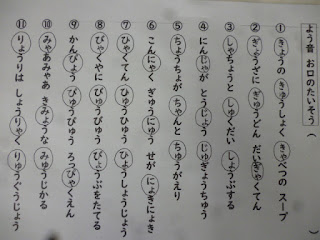 よう音 お口のたいそう（ ）
① きょうの きゅうしょく きゃべつの スープ
② ぎょうざに ぎゅうどん だいぎゃくてん
③ しゃちょうと しゅくだい しょうぶする
④ にんじゃが とうじょう じゅぎょうちゅう
⑤ ちょうちょが ちゃんと ちゅうがえり
⑥ こんにゃく ぎゅうにゅう せが にょきにょき
⑦ ひゃくてん ひゅうひゅう ひょうしょうじょう
⑧ びゃくやに びゅうびゅう びょうぶをたてる
⑨ かんぴょう ぴゅうぴゅう ろっぴゃくえん
⑩ みゃあみゃあ きみょうな みゅうじかる
⑪ りょうりは しょうりゃく りゅうぐうじょう